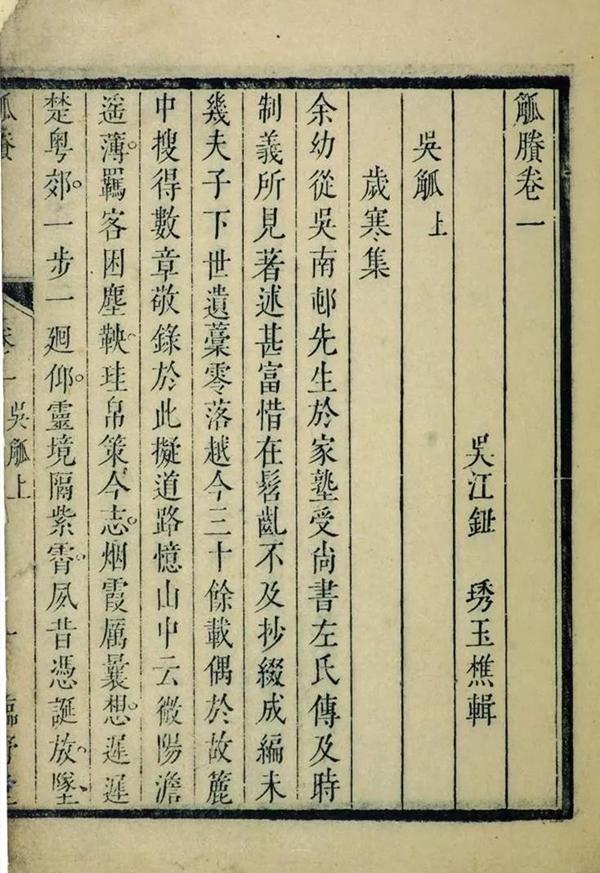 觚賸卷一
吳江鈕 琇玉樵輯
吳觚上
歲寒集
余幼從吳南邨先生於家塾受尚書左氏傳及時
制義所見著述甚富惜在髫齔不及抄綴成編未
幾夫子下世遺藁零落越今三十餘載偶於故簏
中搜得數章敬錄於此擬道路憶山中云微陽澹
遥薄。羈客困塵鞅。珪帛策今志。烟霞厲曩想。遲遲
楚粤郊。一步一廻仰。靈境隔紫霄。夙昔憑誕放。墜
觚賸 卷一 吳觚上 一